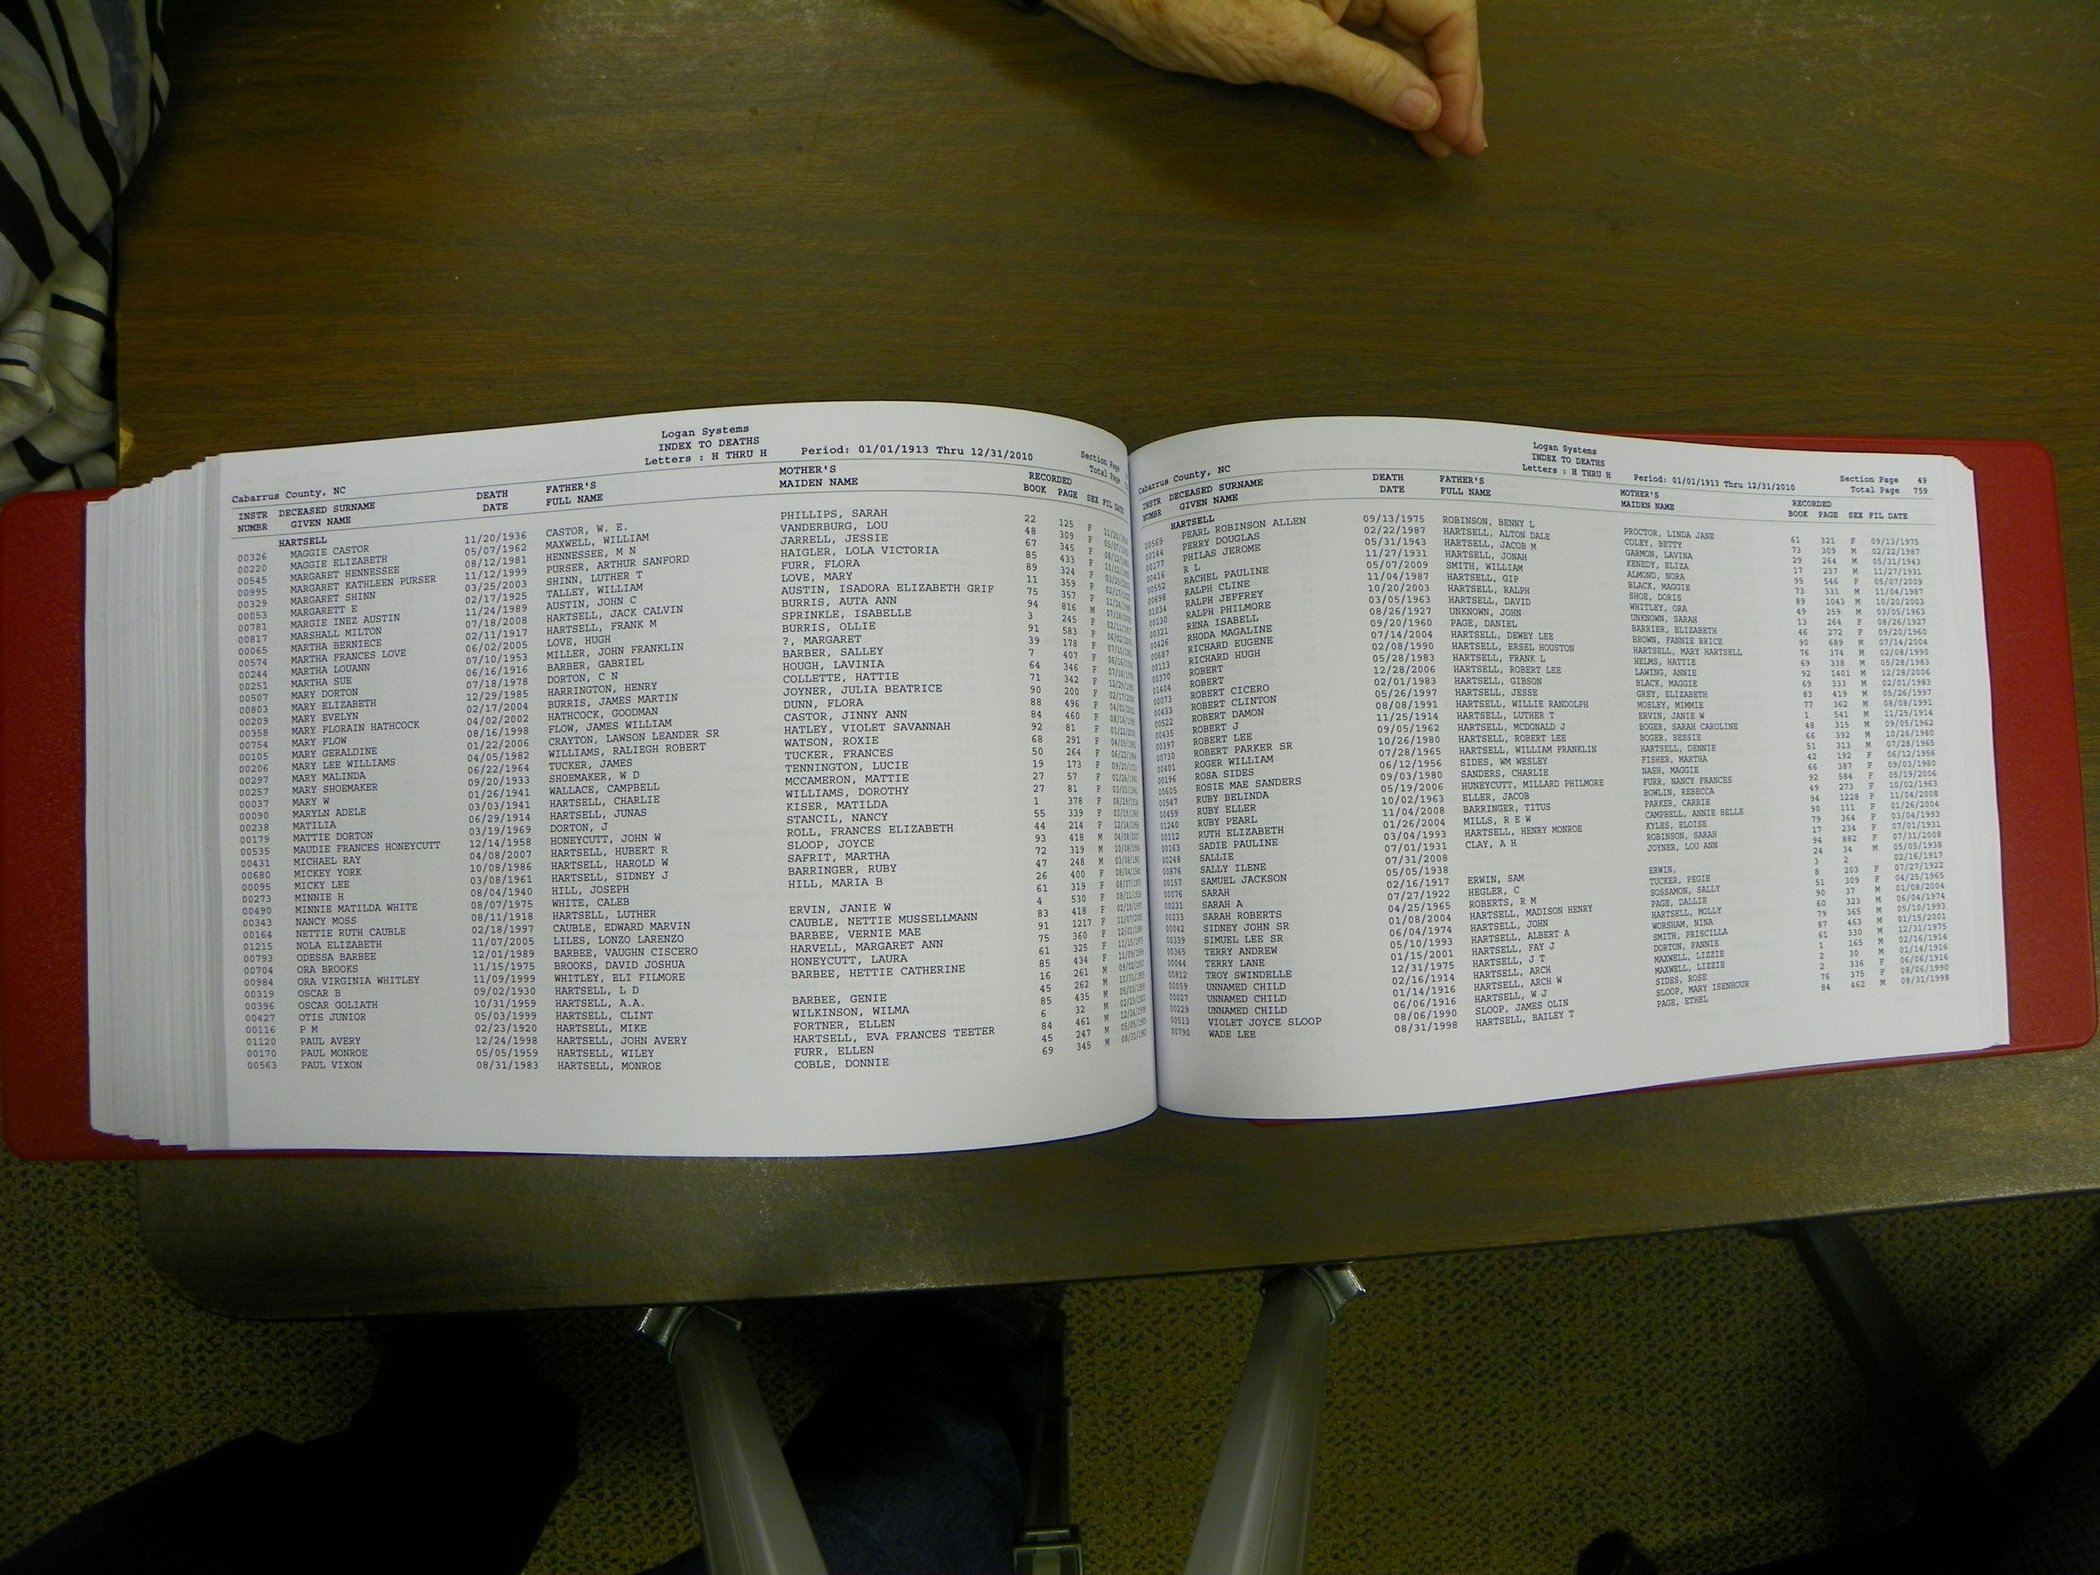 Logan Systems
INDEX TO DEATHS
Letters : H THRU H Period: 01/01/1913 Thru 12/31/2010 Section Page
Cabarrus County, NC Total Page
INSTR DECEASED SURNAME DEATH FATHER'S MOTHER'S RECORDED
NUMBR GIVEN NAME DATE FULL NAME MAIDEN NAME BOOK PAGE SEX FIL DATE
HARTSELL
00326 MAGGIE CASTOR 11/20/1936 CASTOR, W. E. PHILLIPS, SARAH 22 125 F
00220 MAGGIE ELIZABETH 05/07/1962 MAXWELL, WILLIAM VANDERBURG, LOU 48 309 F
00545 MARGARET HENNESSEE 08/12/1981 HENNESSEE, M N JARRELL, JESSIE 67 345 F
00995 MARGARET KATHLEEN PURSER 11/12/1999 PURSER, ARTHUR SANFORD HAIGLER, LOLA VICTORIA 85 433 F
00329 MARGARET SHINN 03/25/2003 SHINN, LUTHER T FURR, FLORA 89 324 F
00053 MARGARETT E 02/17/1925 TALLEY, WILLIAM LOVE, MARY 11 359 F
00781 MARGIE INEZ AUSTIN 11/24/1989 AUSTIN, JOHN C AUSTIN, ISADORA ELIZABETH GRIF 75 357 F
00817 MARSHALL MILTON 07/18/2008 HARTSELL, JACK CALVIN BURRIS, AUTA ANN 94 816 M
00065 MARTHA BERNIECE 02/11/1917 HARTSELL, FRANK M SPRINKLE, ISABELLE 3 245 F
00574 MARTHA FRANCES LOVE 06/02/2005 LOVE, HUGH BURRIS, OLLIE 91 583 F
00244 MARTHA LOUANN 07/10/1953 MILLER, JOHN FRANKLIN ?, MARGARET 39 178 F
00251 MARTHA SUE 06/16/1916 BARBER, GABRIEL BARBER, SALLEY 7 407 F
00507 MARY DORTON 07/18/1978 DORTON, C N HOUGH, LAVINIA 64 346 F
00803 MARY ELIZABETH 12/29/1985 HARRINGTON, HENRY COLLETTE, HATTIE 71 342 F
00209 MARY EVELYN 02/17/2004 BURRIS, JAMES MARTIN JOYNER, JULIA BEATRICE 90 200 F
00358 MARY FLORAIN HATHCOCK 04/02/2002 HATHCOCK, GOODMAN DUNN, FLORA 88 496 F
00754 MARY FLOW 08/16/1998 FLOW, JAMES WILLIAM CASTOR, JINNY ANN 84 460 F
00105 MARY GERALDINE 01/22/2006 CRAYTON, LAWSON LEANDER SR HATLEY, VIOLET SAVANNAH 92 81 F
00206 MARY LEE WILLIAMS 04/05/1982 WILLIAMS, RALIEGH ROBERT WATSON, ROXIE 68 291 F
00297 MARY MALINDA 06/22/1964 TUCKER, JAMES TUCKER, FRANCES 50 264 F
00257 MARY SHOEMAKER 09/20/1933 SHOEMAKER, W D TENNINGTON, LUCIE 19 173 F
00037 MARY W 01/26/1941 WALLACE, CAMPBELL MCCAMERON, MATTIE 27 57 F
00090 MARYLN ADELE 03/03/1941 HARTSELL, CHARLIE WILLIAMS, DOROTHY 27 81 F
00238 MATILIA 06/29/1914 HARTSELL, JUNAS KISER, MATILDA 1 378 F
00179 MATTIE DORTON 03/19/1969 DORTON, J STANCIL, NANCY 55 339 F
00535 MAUDIE FRANCES HONEYCUTT 12/14/1958 HONEYCUTT, JOHN W ROLL, FRANCES ELIZABETH 44 214 F
00431 MICHAEL RAY 04/08/2007 HARTSELL, HUBERT R SLOOP, JOYCE 93 418 M
00680 MICKEY YORK 10/08/1986 HARTSELL, HAROLD W SAFRIT, MARTHA 72 319 M
00095 MICKY LEE 03/08/1961 HARTSELL, SIDNEY J BARRINGER, RUBY 47 248 M
00273 MINNIE H 08/04/1940 HILL, JOSEPH HILL, MARIA B 26 400 F
00490 MINNIE MATILDA WHITE 08/07/1975 WHITE, CALEB 61 319 F
00343 NANCY MOSS 08/11/1918 HARTSELL, LUTHER ERVIN, JANIE W 4 530 F
00164 NETTIE RUTH CAUBLE 02/18/1997 CAUBLE, EDWARD MARVIN CAUBLE, NETTIE MUSSELLMANN 83 418 F
01215 NOLA ELIZABETH 11/07/2005 LILES, LONZO LARENZO BARBEE, VERNIE MAE 91 1217 F
00793 ODESSA BARBEE 12/01/1989 BARBEE, VAUGHN CISCERO HARVELL, MARGARET ANN 75 360 F
00704 ORA BROOKS 11/15/1975 BROOKS, DAVID JOSHUA HONEYCUTT, LAURA 61 325 F
00984 ORA VIRGINIA WHITLEY 11/09/1999 WHITLEY, ELI FILMORE BARBEE, HETTIE CATHERINE 85 434 F
00319 OSCAR B 09/02/1930 HARTSELL, L D 16 261 M
00396 OSCAR GOLIATH 10/31/1959 HARTSELL, A.A. BARBEE, GENIE 45 262 M
00427 OTIS JUNIOR 05/03/1999 HARTSELL, CLINT WILKINSON, WILMA 85 435 M
00116 P M 02/23/1920 HARTSELL, MIKE FORTNER, ELLEN 6 32 M
01120 PAUL AVERY 12/24/1998 HARTSELL, JOHN AVERY HARTSELL, EVA FRANCES TEETER 84 461 M
00170 PAUL MONROE 05/05/1959 HARTSELL, WILEY FURR, ELLEN 45 247 M
00563 PAUL VIXON 08/31/1983 HARTSELL, MONROE COBLE, DONNIE 69 345 M
Logan Systems
INDEX TO DEATHS
Letters : H THRU H Period: 01/01/1913 Thru 12/31/2010 Section Page 49
Cabarrus County, NC Total Page 759
INSTR DECEASED SURNAME DEATH FATHER'S MOTHER'S RECORDED
NUMBR GIVEN NAME DATE FULL NAME MAIDEN NAME BOOK PAGE SEX FIL DATE
HARTSELL
00569 PEARL ROBINSON ALLEN 09/13/1975 ROBINSON, BENNY L PROCTOR, LINDA JANE 61 321 F 09/13/1975
00144 PERRY DOUGLAS 02/22/1987 HARTSELL, ALTON DALE COLEY, BETTY 73 309 M 02/22/1987
00177 PHILAS JEROME 05/31/1943 HARTSELL, JACOB M GARMON, LAVINA 29 264 M 05/31/1943
00416 R L 11/27/1931 HARTSELL, JONAH KENEDY, ELIZA 17 237 M 11/27/1931
00552 RACHEL PAULINE 05/07/2009 SMITH, WILLIAM ALMOND, NORA 95 546 F 05/07/2009
00698 RALPH CLINE 11/04/1987 HARTSELL, GIP BLACK, MAGGIE 73 331 M 11/04/1987
01034 RALPH JEFFREY 10/20/2003 HARTSELL, RALPH SHOE, DORIS 89 1043 M 10/20/2003
00130 RALPH PHILMORE 03/05/1963 HARTSELL, DAVID WHITLEY, ORA 49 259 M 03/05/1963
00321 RENA ISABELL 08/26/1927 UNKNOWN, JOHN UNKNOWN, SARAH 13 264 F 08/26/1927
00426 RHODA MAGALINE 09/20/1960 PAGE, DANIEL BARRIER, ELIZABETH 46 272 F 09/20/1960
00687 RICHARD EUGENE 07/14/2004 HARTSELL, DEWEY LEE BROWN, FANNIE BRICE 90 689 M 07/14/2004
00113 RICHARD HUGH 02/08/1990 HARTSELL, ERSEL HOUSTON HARTSELL, MARY HARTSELL 76 374 M 02/08/1990
00370 ROBERT 05/28/1983 HARTSELL, FRANK L HELMS, HATTIE 69 338 M 05/28/1983
01404 ROBERT 12/28/2006 HARTSELL, ROBERT LEE LAWING, ANNIE 92 1401 M 12/28/2006
00073 ROBERT CICERO 02/01/1983 HARTSELL, GIBSON BLACK, MAGGIE 69 333 M 02/01/1983
00433 ROBERT CLINTON 05/26/1997 HARTSELL, JESSE GREY, ELIZABETH 83 419 M 05/26/1997
00522 ROBERT DAMON 08/08/1991 HARTSELL, WILLIE RANDOLPH MOSLEY, MIMMIE 77 362 M 08/08/1991
00435 ROBERT J 11/25/1914 HARTSELL, LUTHER T ERVIN, JANIE W 1 541 M 11/25/1914
00397 ROBERT LEE 09/05/1962 HARTSELL, MCDONALD J BOGER, SARAH CAROLINE 48 315 M 09/05/1962
00730 ROBERT PARKER SR 10/26/1980 HARTSELL, ROBERT LEE BOGER, BESSIE 66 392 M 10/26/1980
00401 ROGER WILLIAM 07/28/1965 HARTSELL, WILLIAM FRANKLIN HARTSELL, DENNIE 51 313 M 07/28/1965
00196 ROSA SIDES 06/12/1956 SIDES, WM WESLEY FISHER, MARTHA 42 192 F 06/12/1956
00605 ROSIE MAE SANDERS 09/03/1980 SANDERS, CHARLIE NASH, MAGGIE 66 387 F 09/03/1980
00547 RUBY BELINDA 05/19/2006 HUNEYCUTT, MILLARD PHILMORE FURR, NANCY FRANCES 92 584 F 05/19/2006
00459 RUBY ELLER 10/02/1963 ELLER, JACOB BOWLIN, REBECCA 49 273 F 10/02/1963
01240 RUBY PEARL 11/04/2008 BARRINGER, TITUS PARKER, CARRIE 94 1228 F 11/04/2008
00112 RUTH ELIZABETH 01/26/2004 MILLS, R E W CAMPBELL, ANNIE BELLE 90 111 F 01/26/2004
00163 SADIE PAULINE 03/04/1993 HARTSELL, HENRY MONROE KYLES, ELOISE 79 364 F 03/04/1993
00248 SALLIE 07/01/1931 CLAY, A H ROBINSON, SARAH 17 234 F 07/01/1931
00876 SALLY ILENE 07/31/2008 JOYNER, LOU ANN 94 882 F 07/31/2008
00157 SAMUEL JACKSON 05/05/1938 24 34 M 05/05/1938
00076 SARAH 02/16/1917 ERWIN, SAM ERWIN, 3 2 02/16/1917
00231 SARAH A 07/27/1922 HEGLER, C TUCKER, PEGIE 8 203 F 07/27/1922
00233 SARAH ROBERTS 04/25/1965 ROBERTS, R M SOSSAMON, SALLY 51 309 F 04/25/1965
00042 SIDNEY JOHN SR 01/08/2004 HARTSELL, MADISON HENRY PAGE, DALLIE 90 37 M 01/08/2004
00339 SIMUEL LEE SR 06/04/1974 HARTSELL, JOHN HARTSELL, MOLLY 60 323 M 06/04/1974
00365 TERRY ANDREW 05/10/1993 HARTSELL, ALBERT A WORSHAM, NINA 79 365 M 05/10/1993
00044 TERRY LANE 01/15/2001 HARTSELL, FAY J SMITH, PRISCILLA 87 463 M 01/15/2001
00812 TROY SWINDELLE 12/31/1975 HARTSELL, J T DORTON, FANNIE 61 330 M 12/31/1975
00059 UNNAMED CHILD 02/16/1914 HARTSELL, ARCH MAXWELL, LIZZIE 1 165 M 02/16/1914
00027 UNNAMED CHILD 01/14/1916 HARTSELL, ARCH W MAXWELL, LIZZIE 2 30 M 01/14/1916
00229 UNNAMED CHILD 06/06/1916 HARTSELL, W J SIDES, ROSE 2 336 F 06/06/1916
00513 VIOLET JOYCE SLOOP 08/06/1990 SLOOP, JAMES OLIN SLOOP, MARY ISENHOUR 76 375 F 08/06/1990
00790 WADE LEE 08/31/1998 HARTSELL, BAILEY T PAGE, ETHEL 84 462 M 08/31/1998